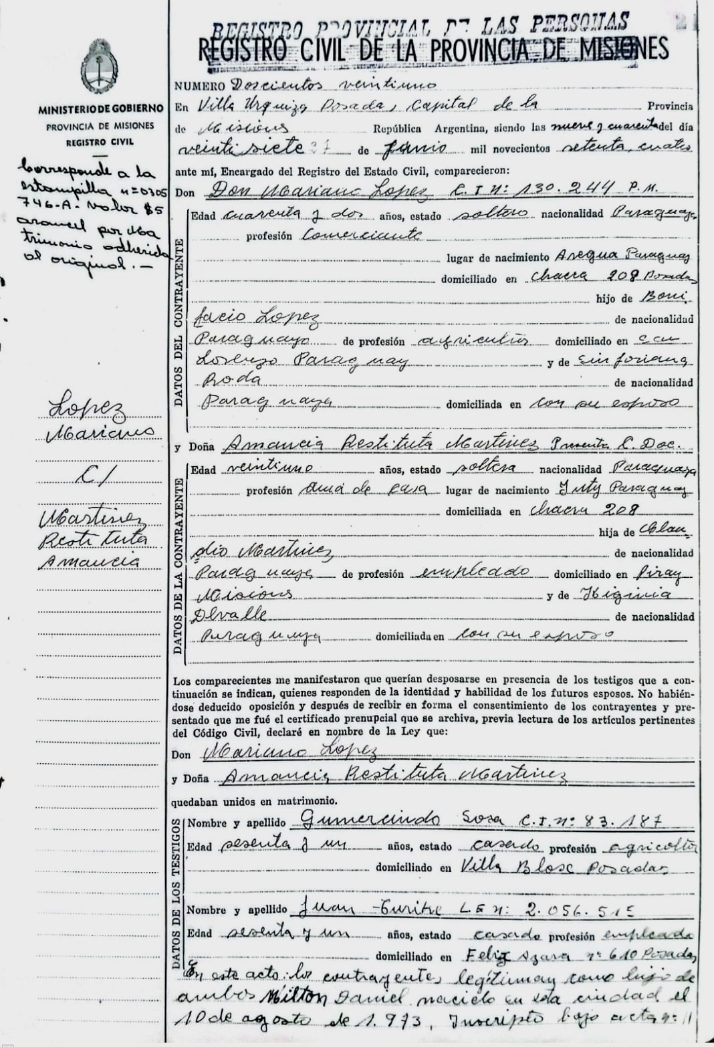 REGISTRO PROVINCIAL DE LAS PERSONAS
REGISTRO CIVIL DE LA PROVINCIA DE MISIONES
MINISTERIO DE GOBIERNO
PROVINCIA DE MISIONES
REGISTRO CIVIL
Corresponde a la
estampilla nº 0305
746-A. Valor $5
arancel por Ma
trimonio adherida
al original.-
Lopez
Mariano
C/
Martinez
Restituta
Amancia
NUMERO Doscientos veintiuno
En Villa Urquiza Posadas, Capital de la Provincia
de Misiones República Argentina, siendo las nueve y cuarenta del día
veinti siete 27 de Junio mil novecientos setenta, cuatro
ante mí, Encargado del Registro del Estado Civil, comparecieron:
Don Don Mariano Lopez C.I nº: 130.244 P.M.
DATOS DEL CONTRAYENTE
Edad cuarenta y dos años, estado soltero nacionalidad Paraguaya
profesión Comerciante
lugar de nacimiento Aregua Paraguay
domiciliado en chacra 208 Posadas
hijo de Boni
facio Lopez de nacionalidad
Paraguaya de profesión agricultor domiciliado en
Lorenzo Paraguay y de Sinforiana
Roda de nacionalidad
Paraguaya domiciliada en con su esposo
y Doña Amancia Restituta Martinez Presenta C. Doc.
DATOS DE LA CONTRAYENTE
Edad veintiuno años, estado soltera nacionalidad Paraguaya
profesión ama de casa lugar de nacimiento Yuty Paraguay
domiciliada en chacra 208
hija de Clau
dio Martinez de nacionalidad
Paraguaya de profesión empleado domiciliado en Piray
Misiones y de Higinia
Dlvalle de nacionalidad
Paraguaya domiciliada en con su esposo
Los comparecientes me manifestaron que querían desposarse en presencia de los testigos que a con-
tinuación se indican, quienes responden de la identidad y habilidad de los futuros esposos. No habién-
dose deducido oposición y después de recibir en forma el consentimiento de los contrayentes y pre-
sentado que me fué el certificado prenupcial que se archiva, previa lectura de los artículos pertinentes
del Código Civil, declaré en nombre de la Ley que:
Don Mariano Lopez
y Doña Amancia Restituta Martinez
quedaban unidos en matrimonio.
DATOS DE LOS TESTIGOS
Nombre y apellido Gumercindo Sosa C.I. nº 83.187
Edad sesenta y un años, estado casado profesión agricultor
domiciliado en Villa Blosc Posadas
Nombre y apellido Juan LE nº: 2.056.515
Edad sesenta y un años, estado casado profesión empleado
domiciliado en Felix Azara nº 610 Posadas
En este acto: los contrayentes, legitiman como hijo de
ambos Milton Daniel, nacido en esta ciudad el
10 de agosto de 1.973, Inscripto bajo acta nº: 11